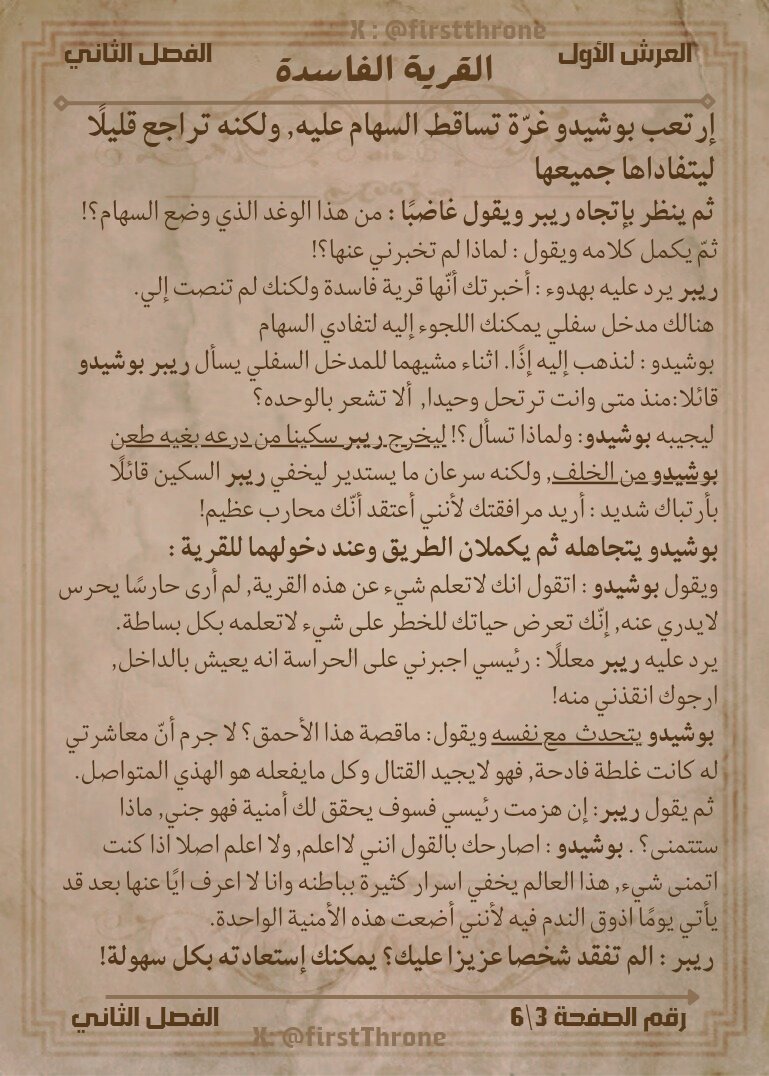 X : @firstthrone
العرش الأول
القرية الفاسدة
الفصل الثاني
إرتعب بوشيدو غرّة تساقط السهام عليه, ولكنه تراجع قليلًا
ليتفاداها جميعها
ثم ينظر بإتجاه ريبر ويقول غاضبًا : من هذا الوغد الذي وضع السهام؟!
ثمّ يكمل كلامه ويقول : لماذا لم تخبرني عنها؟!
ريبر يرد عليه بهدوء : أخبرتك أنّها قرية فاسدة ولكنك لم تنصت إلي.
هنالك مدخل سفلي يمكنك اللجوء إليه لتفادي السهام
بوشيدو : لنذهب إليه إذًا. اثناء مشيهما للمدخل السفلي يسأل ريبر بوشيدو
قائلا:منذ متى وانت ترتحل وحيدا, ألا تشعر بالوحده؟
ليجيبه بوشيدو: ولماذا تسأل؟! ليخرج ريبر سكينا من درعه بغيه طعن
بوشيدو من الخلف, ولكنه سرعان ما يستدير ليخفي ريبر السكين قائلًا
بأرتباك شديد : أريد مرافقتك لأنني أعتقد أنّك محارب عظيم!
بوشيدو يتجاهله ثم يكملان الطريق وعند دخولهما للقرية :
ويقول بوشيدو : اتقول انك لاتعلم شيء عن هذه القرية, لم أرى حارسًا يحرس
لايدري عنه, إنّك تعرض حياتك للخطر على شيء لاتعلمه بكل بساطة.
يرد عليه ريبر معللًا : رئيسي اجبرني على الحراسة انه يعيش بالداخل,
ارجوك انقذني منه!
بوشيدو يتحدث مع نفسه ويقول: ماقصة هذا الأحمق؟ لا جرم أنّ معاشرتي
له كانت غلطة فادحة, فهو لايجيد القتال وكل مايفعله هو الهذي المتواصل.
ثم يقول ريبر: إن هزمت رئيسي فسوف يحقق لك أمنية فهو جني, ماذا
ستتمنى؟ . بوشيدو : اصارحك بالقول انني لااعلم, ولا اعلم اصلا اذا كنت
اتمنى شيء, هذا العالم يخفي اسرار كثيرة بباطنه وانا لا اعرف ايًا عنها بعد قد
يأتي يومًا اذوق الندم فيه لأنني أضعت هذه الأمنية الواحدة.
ريبر : الم تفقد شخصا عزيزا عليك؟ يمكنك إستعادته بكل سهولة!
رقم الصفحة 3\6
الفصل الثاني
X: @firstThrone